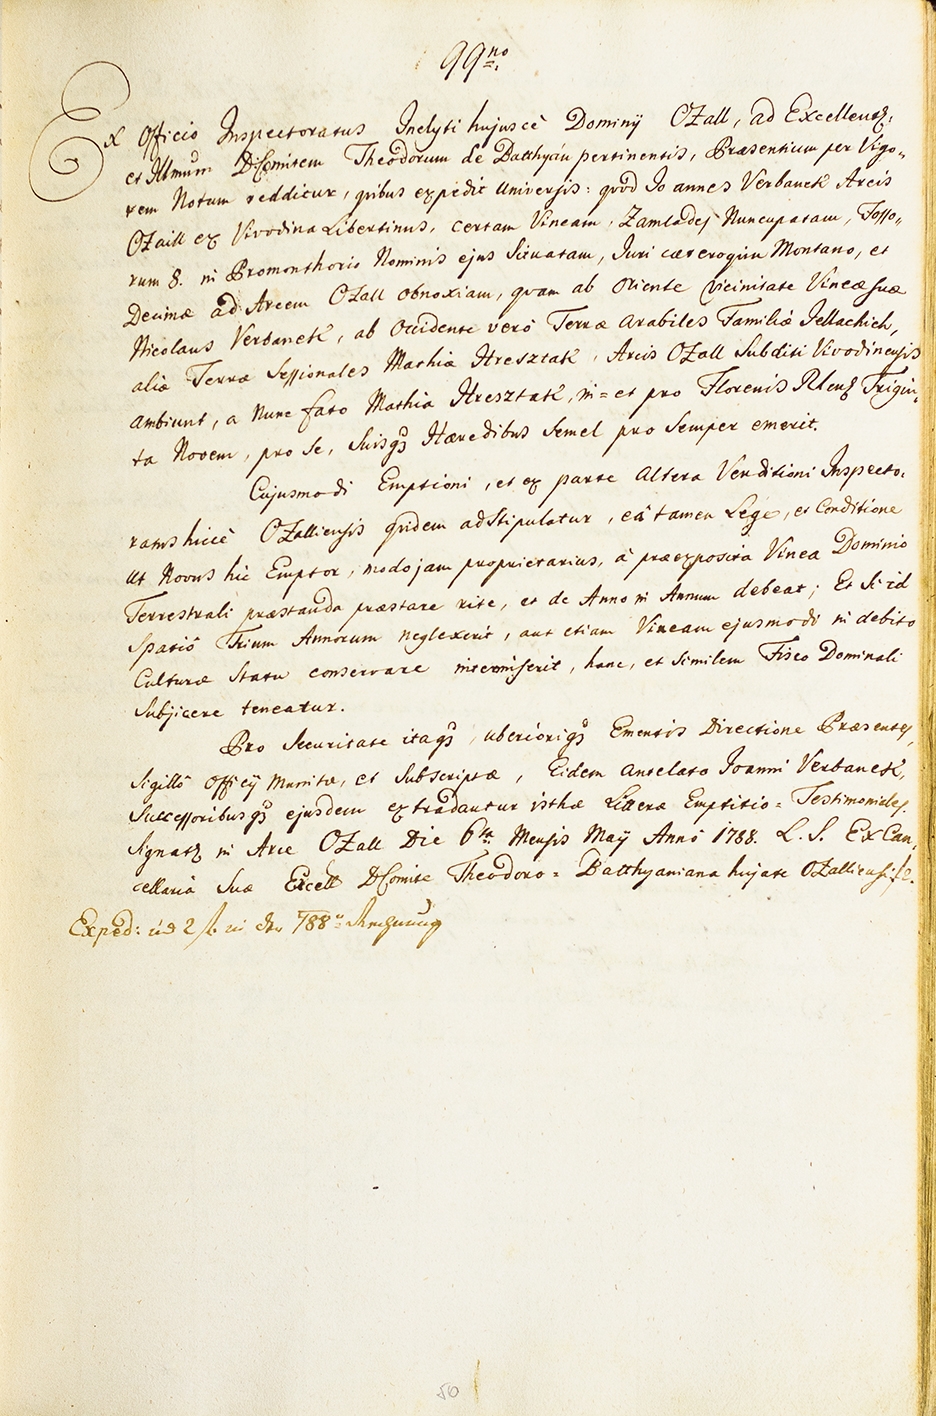 99no
Ex Officio Inspectoratus Inclyti hujusce Dominÿ OZall, ad Excellentz:
et Illmum D Comitem Theodorum de Batthyán pertinentis, Præsentium per Vigo„
rem Notum redditur, quibus expedit universis: quod Joannes Verbanek Arcis
OZaill ex Vivodina Libertinus, certam Vineam, Zamladej Nuncupatam, Fosso„
rum 8. in Promonthorio Nominis ejus Situatam, Juri cæteroquin Montano, et
Decimæ ad Arcem OZall obnoxiam, quam ab oriente Vicinitate Vineæ suæ
Nicolaus Verbanek, ab Occidente verò Terræ arabiles Familiæ Jellachich,
aliæ Terræ Sessionales Mathiæ Hresztak, Arcis OZall Subditi Vivodinensis
Ambiunt, a nunc fato Mathia Hresztak, in= et pro Florenis Rhenz Trigin„
ta Novem, pro Se, Suisqz Hæredibus Semel pro Semper emerit.
Cujusmodi Emptioni, et ex parte altera Venditioni Inspecto„
ratus hicce OZalliensis quidem adstipulatur, eâ tamen Lege, et Conditione
ut Novus hic Emptor, modo jam proprietarius, à præexposita Vinea Dominio
Terrestrali præstanda præstare rite, et de Anno in Annum debeat; Et Si id
Spatiô Trium Annorum neglexerit, aut etiam Vineam ejusmodi in debito
Culturæ Statu conservare intermiserit, hanc, et Similem Fisco Dominali
Subjicere teneatur.
Pro Securitate itaqz, uberioriqz Ementis Directione Præsentes,
Sigillô Officÿ Munitæ, et Subscriptæ, Eidem antelato Joanni Verbanek,
Successoribusqz ejusdem extradantur isthæ Litteræ Emptitio= Testimoniales.
Signatz in Arce OZall Die 6ta Mensis Maÿ Annô 1788. L. S. Ex Can„
cellaria Suæ Excell D Comite Theodoro= Batthyaniana hujate OZalliensi.
Exped: 2 in der 788
50